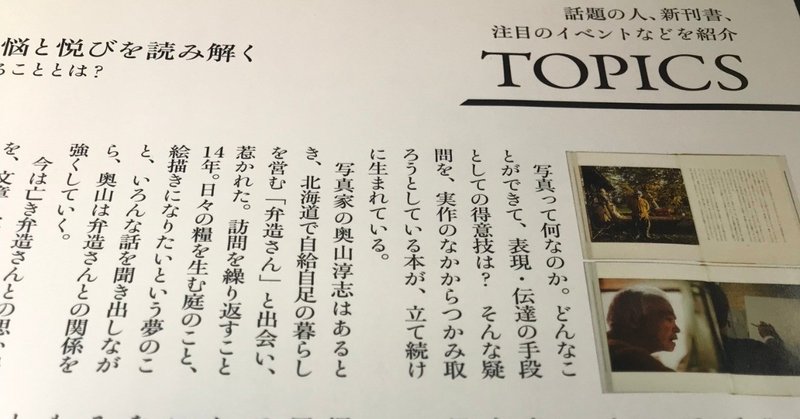 話題の人、新刊書、
注目のイベントなどを紹介
TOPICS
悩と悦びを読み解く
ることとは？
写真って何なのか。どんなこ
とができて、表現・伝達の手段
としての得意技は？　そんな疑
問を、実作のなかからつかみ取
ろうとしている本が、立て続け
に生まれている。
写真家の奥山淳志はあると
き、北海道で自給自足の暮らし
を営む「弁造さん」と出会い、
惹かれた。訪問を繰り返すこと
14年。日々の糧を生む庭のこと、
絵描きになりたいという夢のこ
と、いろんな話を聞き出しなが
ら、奥山は弁造さんとの関係を
強くしていく。
今は亡き弁造さんとの思い